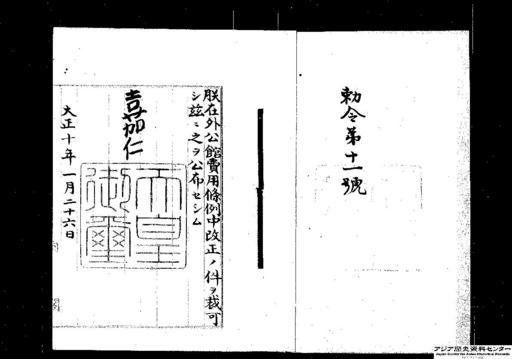 勅令第十一號
朕在外公館費用條例中改正ノ件ヲ裁可
シ茲ニ之ヲ公布セシム
嘉仁
天皇御璽
大正十年一月二十六日
アジア歴史資料センター
Japan Center for Asian Historical Records